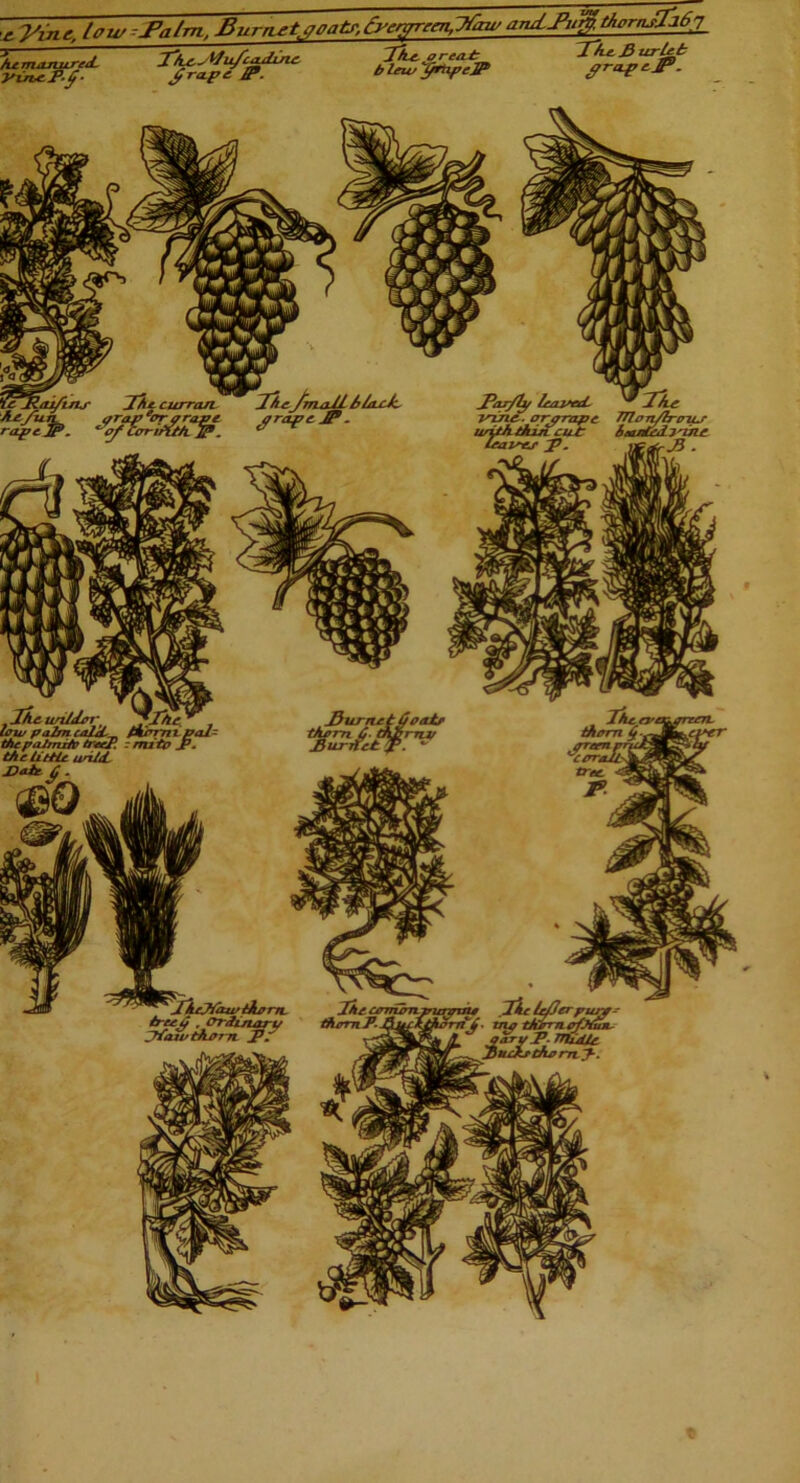 Vine, low-Palm, Burnet goats, Evergreen, Haw and Purg
ing
thorns. T: 167
manured
Vine P. G.
The Muſcadine
grape P.
The great
blew grape P
The Burlet
grape P.
Raiſins
ſun
rape P.
The curran
grap or grape
of Corinth P.
The ſmall black
grape P.
Parſly leaved
vine. or grape
with thin cut
leaves P.
The
Monſtrous
bearded vine
B.
The wilder
low palm call'd
the palmito tree P.
the little wild
Date G.
The
thorni pal=
=mito P.
Burnet Goats
thorn G. thorny
Burnet P.
The evergreen
thorn G. ever
green
corall
tree
P.
The Haw thorn
tree G. Ordinary
Haw thorn P.
The common purging
thorn P. Buckthorn G.
The leſſer purg=
ing thorn of Hun=
gary P. Midle
Bucksthorn J.